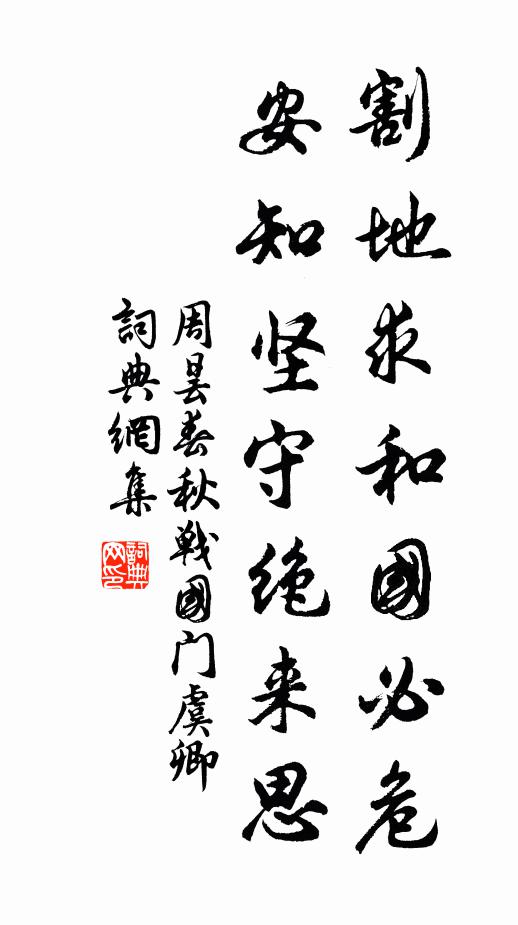 割地求和國必危
安知坚守绝来思
周昙春秋戰國門虞卿
詞典網集
詞典网印